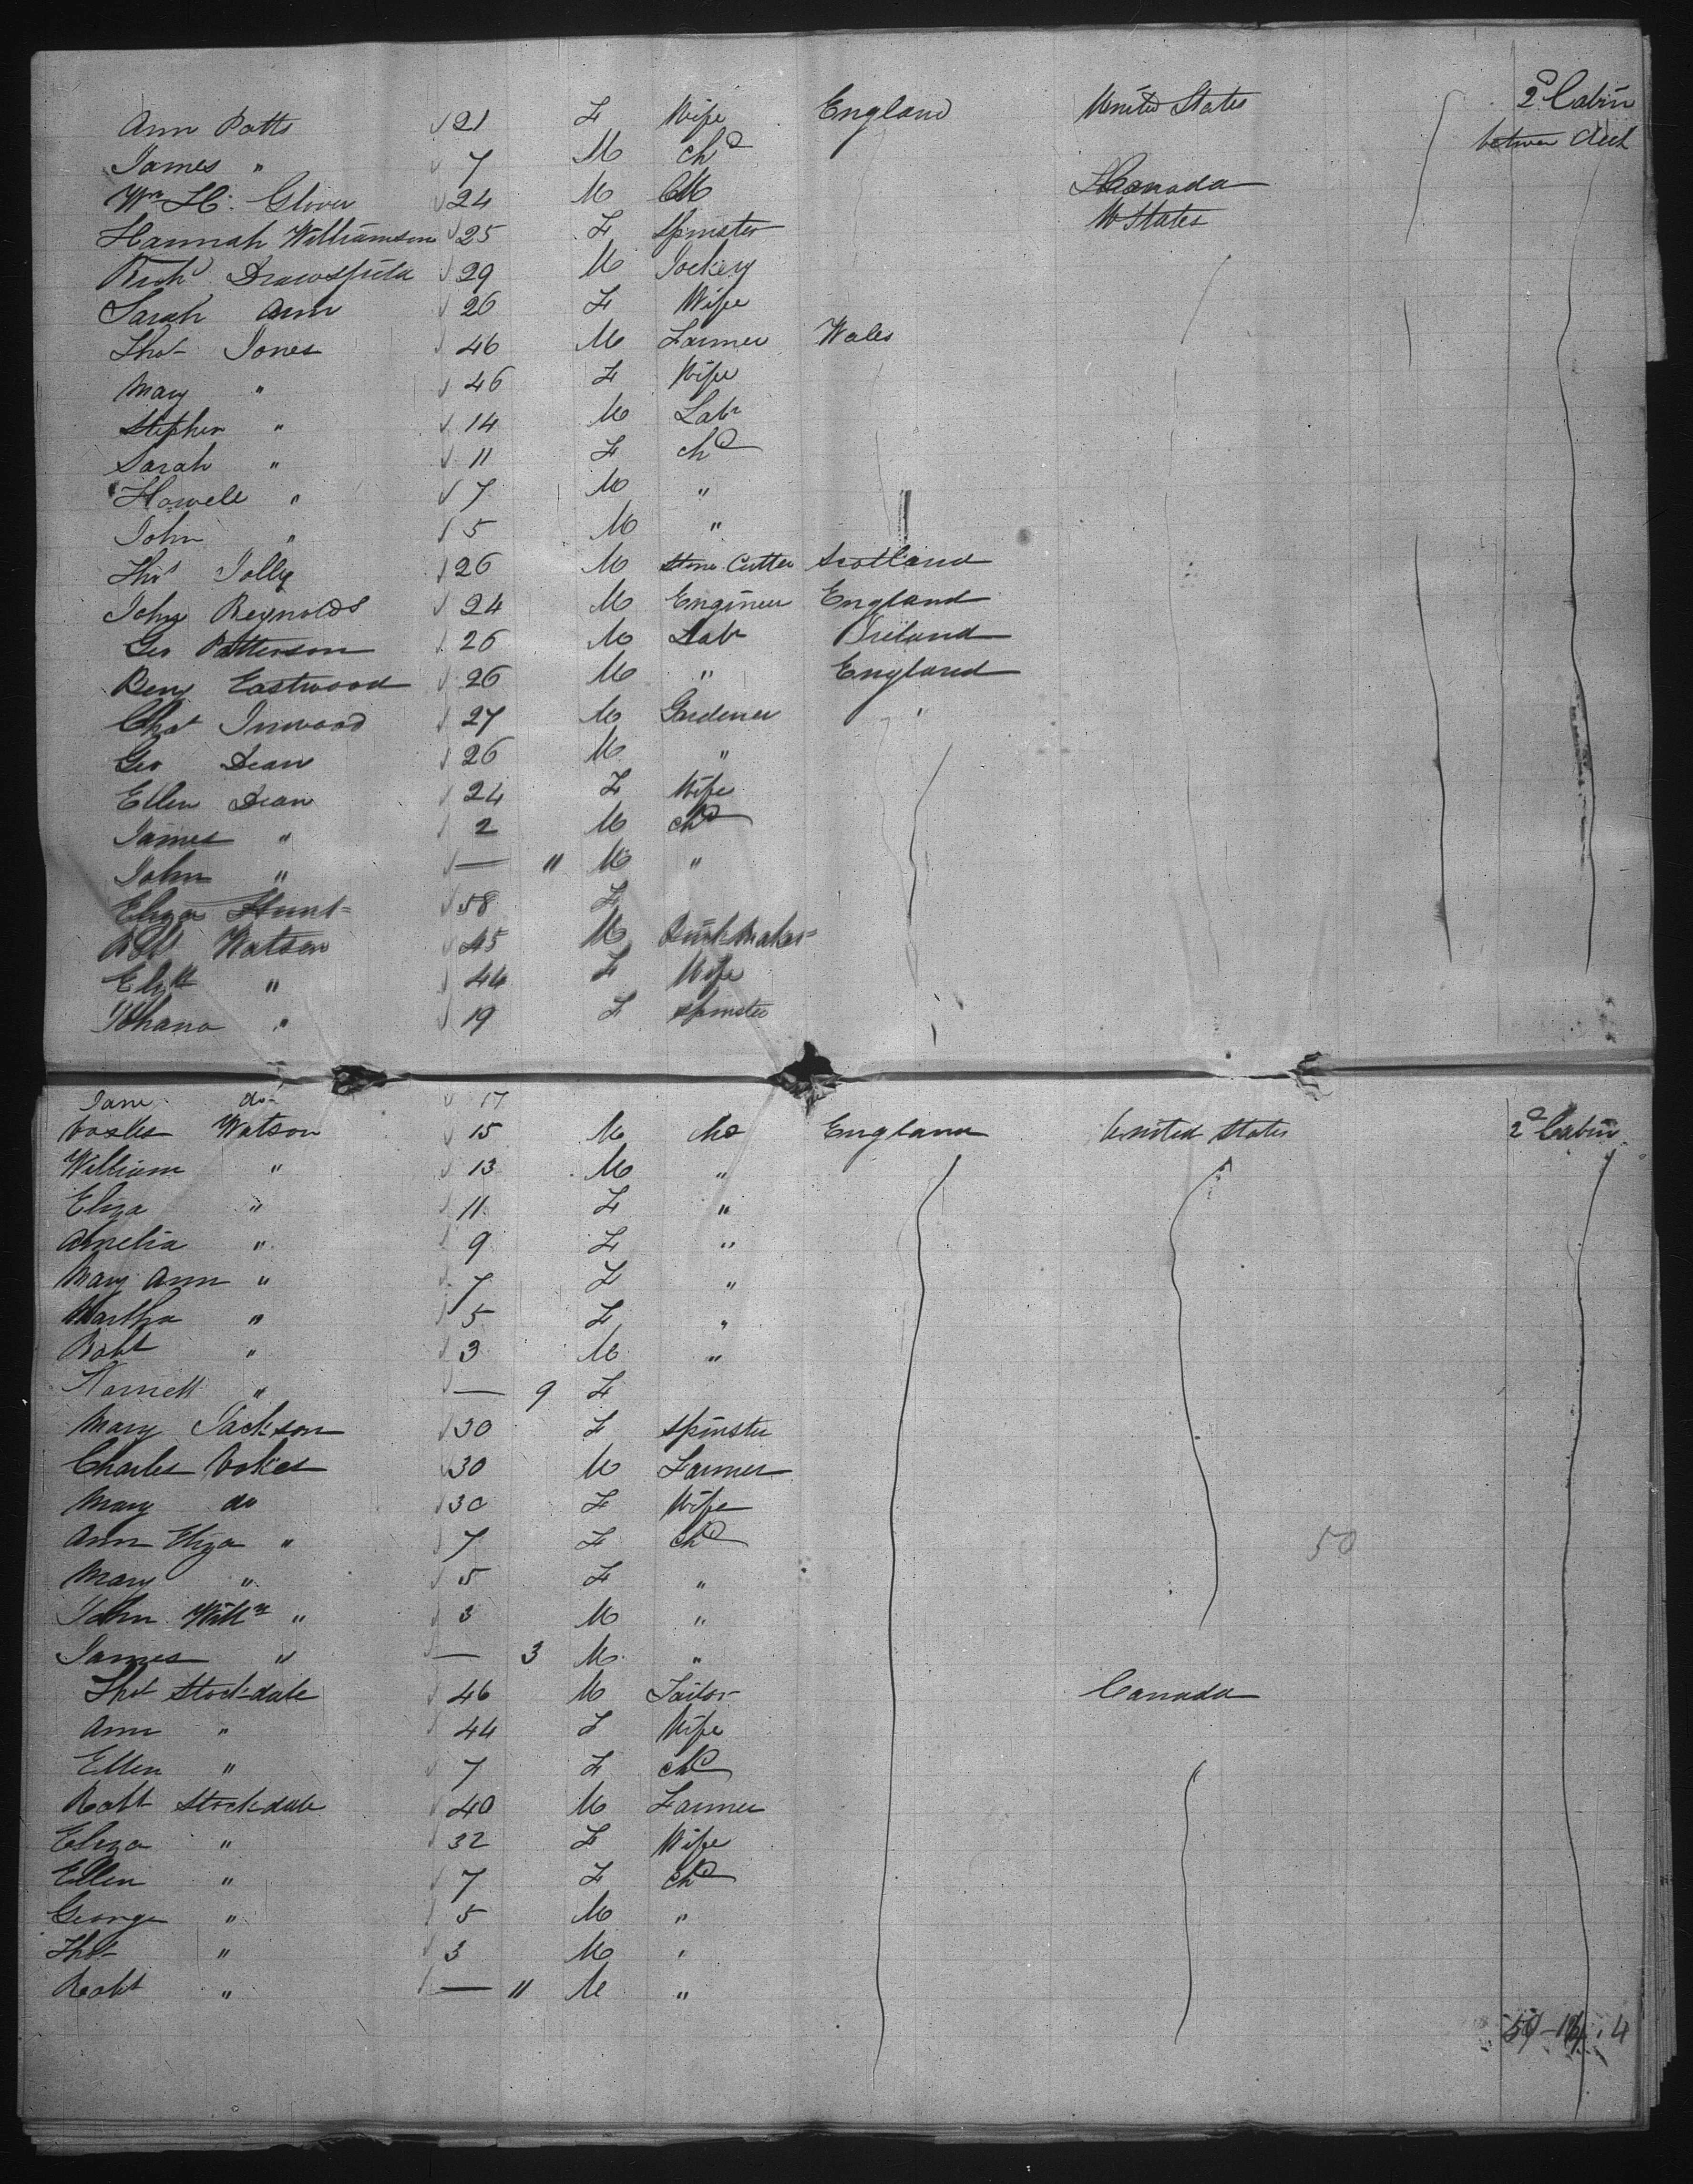 Ann Potts 21 F Wife England United States 2d Cabin
James " 7 M chd between deck
Wm H. Glover 24 M Canada
Hannah Williamson 25 F Spinster U States
Richd 29 M
Sarah Ann 26 F Wife
Thos Jones 46 M Farmer Wales
Mary " 46 F Wife
Stephen " 14 M Labr
Sarah " 11 F chd
Howell " 7 M "
John " 5 M "
Thos Jolly 26 M Stone Cutter Scotland
John Reynolds 24 M Engineer England
Geo Patterson 26 M Labr Ireland
Benj Eastwood 26 M " England
Chas Inwood 27 M Gardener "
Geo Dean 26 M "
Ellen Dean 24 F Wife
James " 2 M chd
John " — 11 M "
Eliza Hunt 58 F
Robt Watson 45 M
Elizth " 44 F Wife
" 19 F Spinster
Jane do 17
Watson 15 M England United States 2d Cabin
William " 13 M "
Eliza " 11 F "
Amelia " 9 F "
Mary Ann " 7 F "
Martha " 5 F "
Robt " 3 M "
" — 9 F
Mary Jackson 30 F Spinster
Charles Vokes 30 M Farmer
Mary do 30 F Wife
Ann Eliza " 7 F chd 50
Mary " 5 F "
John Willm " 3 M "
James " — 3 M "
Thos Stockdale 46 M Tailor Canada
Ann " 44 F Wife
Ellen " 7 F chd
Robt Stockdale 40 M Farmer
Eliza " 32 F Wife
Ellen " 7 F chd
George " 5 M "
Thos " 3 M "
Robt " — 11 M "